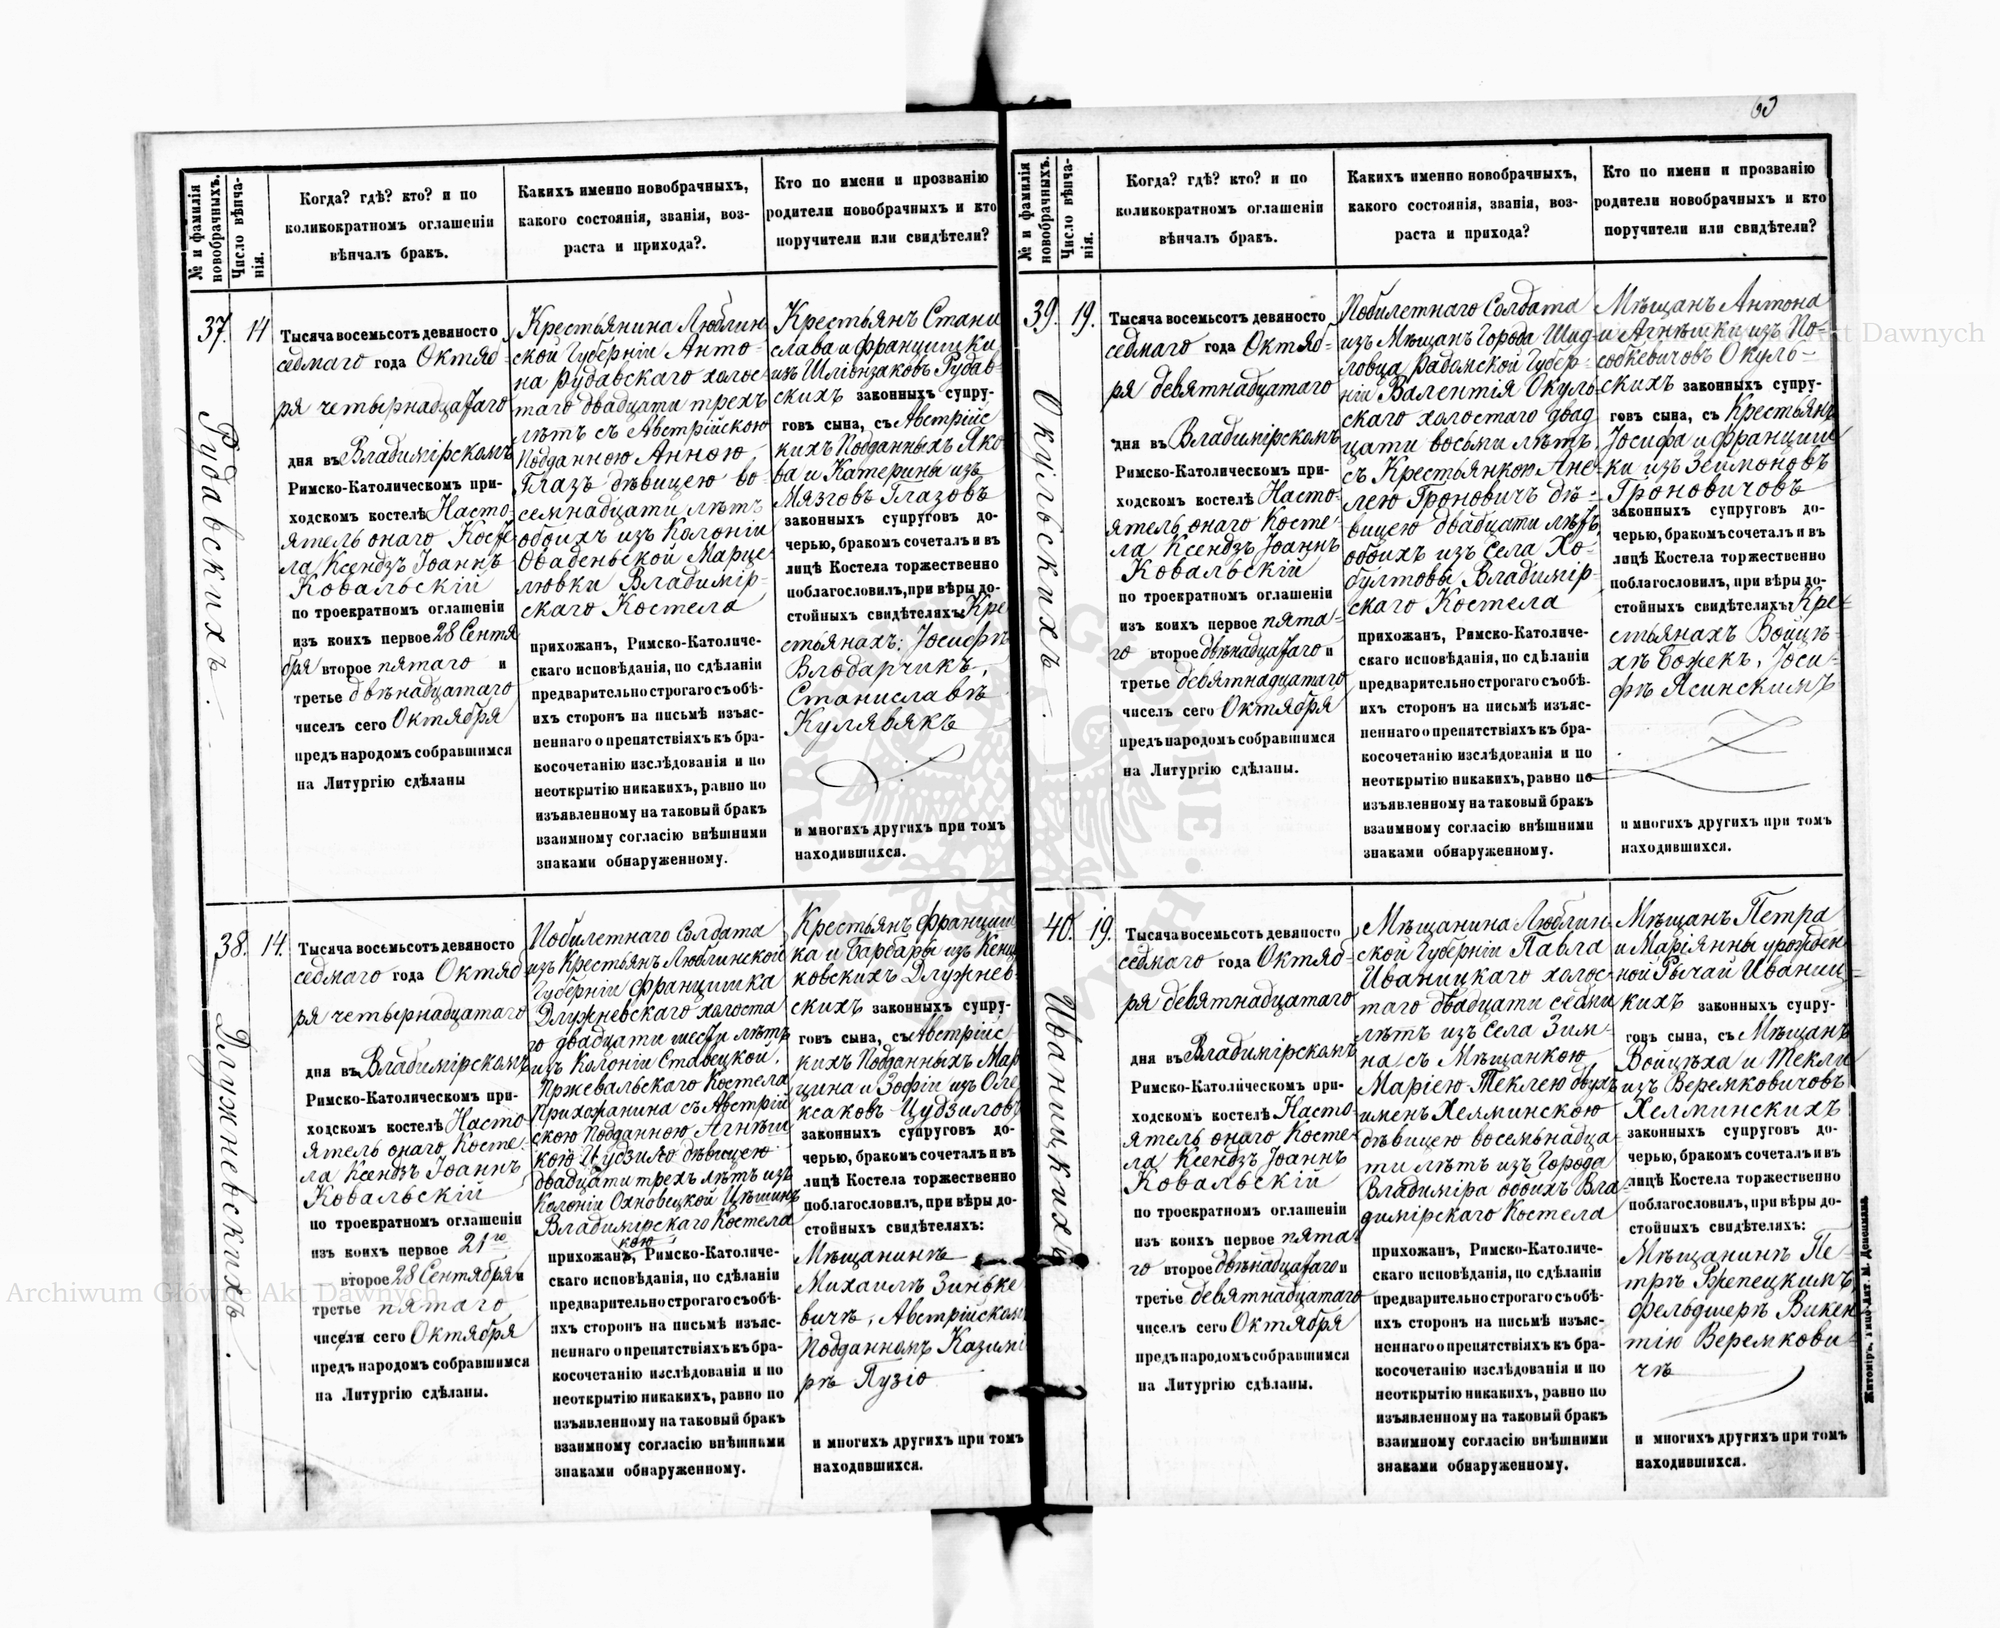 60
№ и фамилія новобрачныхъ.
Число вѣнчанія.
Когда? гдѣ? кто? и по
коликократномъ оглашеніи
вѣнчалъ бракъ.
Какихъ именно новобрачныхъ,
какого состоянія, званія, воз-
раста и прихода?.
Кто по имени и прозванію
родители новобрачныхъ и кто
поручители или свидѣтели?
37.
14
Рудавскихъ.
Тысяча восемьсотъ девяносто
седмаго года Октяб-
ря четырнадцатаго
дня въ Владимірскомъ
Римско-Католическомъ при-
ходскомъ костелѣ Насто-
ятель онаго Косте-
ла Ксендзъ Іоаннъ
Ковальскій
по троекратномъ оглашеніи
изъ коихъ первое 28 Сентя
бря второе пятаго и
третье двѣнадцатаго
чиселъ сего Октября
предъ народомъ собравшимся
на Литургію сдѣланы
Крестьянина Люблин
ской Губерніи Анто-
на Рудавскаго холос-
таго двадцати трехъ
лѣтъ съ Австрійскою
Подданною Анною
Глазъ дѣвицею во-
семнадцати лѣтъ
обоихъ изъ Колоніи
Оваденьской Марце
левки Владимір-
скаго Костела
прихожан, Римско-Католиче-
скаго исповѣданія, по сдѣланіи
предварительно строгаго съ обѣ-
ихъ сторонъ на письмѣ изъяс-
неннаго о препятствіяхъ къ бра-
косочетанію изслѣдованія и по
неоткрытію никакихъ, равно по
изъявленному на таковый бракъ
взаимному согласію внѣшними
знаками обнаруженному.
Крестьянъ Стани
слава и Францишки
изъ Шлюнзаковъ Рудав-
скихъ законныхъ супру-
говъ сына, съ Австрійс
кихъ Подданныхъ Яко
ва и Катерины изъ
Мязговъ Глазовъ
законныхъ супруговъ до-
черью, бракомъ сочеталъ и въ
лицѣ Костела торжественно
поблагословилъ, при вѣры до-
стойныхъ свидѣтеляхъ: Кре
стьянахъ: Іосифѣ
Влодарчикъ,
Станиславѣ
Кулявякъ
и многихъ другихъ при томъ
находившихся.
38.
14.
Длужневскихъ.
Тысяча восемьсотъ девяносто
седмаго года Октяб
ря четырнадцатаго
дня въ Владимірскомъ
Римско-Католическомъ при-
ходскомъ костелѣ Насто-
ятель онаго Косте-
ла Ксендзъ Іоаннъ
Ковальскій
по троекратномъ оглашеніи
изъ коихъ первое 21го
второе 28 Сентября и
третье пятаго
чиселъ сего Октября
предъ народомъ собравшимся
на Литургію сдѣланы.
Побилетнаго Солдата
изъ Крестьянъ Люблинской
Губерніи Францишка
Длужневскаго холоста
го двадцати шести лѣтъ
изъ Колоніи Ставецкой,
Пржевальскаго Костела
Прихожанина съ Австрій
скою Подданною Агнѣш
кою Цудзило дѣвицею
двадцати трехъ лѣтъ изъ
Колоніи Охновецкой Цѣшинъ
Владимірскаго Костела
кою
прихожан, Римско-Католиче-
скаго исповѣданія, по сдѣланіи
предварительно строгаго съ обѣ-
ихъ сторонъ на письмѣ изъяс-
неннаго о препятствіяхъ къ бра-
косочетанію изслѣдованія и по
неоткрытію никакихъ, равно по
изъявленному на таковый бракъ
взаимному согласію внѣшними
знаками обнаруженному.
Крестьянъ Францыш
ка и Барбары изъ Кенц
ковскихъ Длужнев-
скихъ законныхъ супру-
говъ сына, съ Австрійс
кихъ Подданныхъ Мар
цина и Зофіи изъ Оле
ксаковъ Цудзиловъ
законныхъ супруговъ до-
черью, бракомъ сочеталъ и въ
лицѣ Костела торжественно
поблагословилъ, при вѣры до-
стойныхъ свидѣтеляхъ:
Мѣщанинѣ
Михаилѣ Зиньке
вичѣ, Австрійскомъ
Подданномъ Казими
рѣ Пузіо
и многихъ другихъ при томъ
находившихся.
№ и фамилія новобрачныхъ.
Число вѣнчанія.
Когда? гдѣ? кто? и по
коликократномъ оглашеніи
вѣнчалъ бракъ.
Какихъ именно новобрачныхъ,
какого состоянія, званія, воз-
раста и прихода?
Кто по имени и прозванію
родители новобрачныхъ и кто
поручители или свидѣтели?
39.
19.
Окульскихъ.
Тысяча восемьсотъ девяносто
седмаго года Октяб-
ря девятнадцатаго
дня въ Владимірскомъ
Римско-Католическомъ при-
ходскомъ костелѣ Насто-
ятель онаго Косте-
ла Ксендзъ Іоаннъ
Ковальскій
по троекратномъ оглашеніи
изъ коихъ первое пята-
го второе двѣнадцатаго и
третье девятнадцатаго
чиселъ сего Октября
предъ народомъ собравшимся
на Литургію сдѣланы.
Побилетнаго Солдата
изъ Мѣщанъ Города Шид-
ловца Радомской Губер-
ніи Валентія Окуль
скаго холостаго двад
цати восьми лѣтъ
съ Крестьянкою Ане-
лею Гроновичъ дѣ-
вицею двадцати лѣтъ
обоихъ изъ Села Хо-
булт​овы Владимір-
скаго Костела
прихожан, Римско-Католиче-
скаго исповѣданія, по сдѣланіи
предварительно строгаго съ обѣ-
ихъ сторонъ на письмѣ изъяс-
неннаго о препятствіяхъ къ бра-
косочетанію изслѣдованія и по
неоткрытію никакихъ, равно по
изъявленному на таковый бракъ
взаимному согласію внѣшними
знаками обнаруженному.
Мѣщанъ Антона
и Агнѣшки изъ По-
содкевичовъ Окуль-
скихъ законныхъ супру-
говъ сына, съ Крестьянъ
Іосифа и Францыш
ки изъ Зеймоновъ
Гроновичовъ
законныхъ супруговъ до-
черью, бракомъ сочеталъ и въ
лицѣ Костела торжественно
поблагословилъ, при вѣры до-
стойныхъ свидѣтеляхъ: Кре-
стьянахъ Войцѣ-
хѣ Божек, Іоси-
фѣ Ясинскимъ
и многихъ другихъ при томъ
находившихся.
40.
19.
Иваницкихъ
Тысяча восемьсотъ девяносто
седмаго года Октяб-
ря девятнадцатаго
дня въ Владимірскомъ
Римско-Католическомъ при-
ходскомъ костелѣ Насто-
ятель онаго Косте-
ла Ксендзъ Іоаннъ
Ковальскій
по троекратномъ оглашеніи
изъ коихъ первое пята
го второе двѣнадцатаго и
третье девятнадцатаго
чиселъ сего Октября
предъ народомъ собравшимся
на Литургію сдѣланы.
Мѣщанина Люблин
ской Губерніи Павла
Иваницкаго холос-
таго двадцати седми
лѣтъ изъ Села Зим-
на съ Мѣщанкою
Маріею Теклею двухъ
именъ Хелминскою
дѣвицею восемьнадца-
ти лѣтъ изъ Города
Владиміра обоихъ Вла
димірскаго Костела
прихожан, Римско-Католиче-
скаго исповѣданія, по сдѣланіи
предварительно строгаго съ обѣ-
ихъ сторонъ на письмѣ изъяс-
неннаго о препятствіяхъ къ бра-
косочетанію изслѣдованія и по
неоткрытію никакихъ, равно по
изъявленному на таковый бракъ
взаимному согласію внѣшними
знаками обнаруженному.
Мѣщанъ Петра
и Маріянны урожден
ной Рычай Иваниц-
кихъ законныхъ супру-
говъ сына, съ Мѣщанъ
Войцѣха и Текли
изъ Веремковичовъ
Хелминскихъ
законныхъ супруговъ до-
черью, бракомъ сочеталъ и въ
лицѣ Костела торжественно
поблагословилъ, при вѣры до-
стойныхъ свидѣтеляхъ:
Мѣщанинѣ Пе-
трѣ Ржепецкимъ,
Фельдшерѣ Викен
тію Веремкови-
чѣ
и многихъ другихъ при томъ
находившихся.
Житоміръ, Типо-Лит. М. Дененмана
Archiwum Główne Akt Dawnych
Akt Dawnych
ARCH
GŁÓWNE